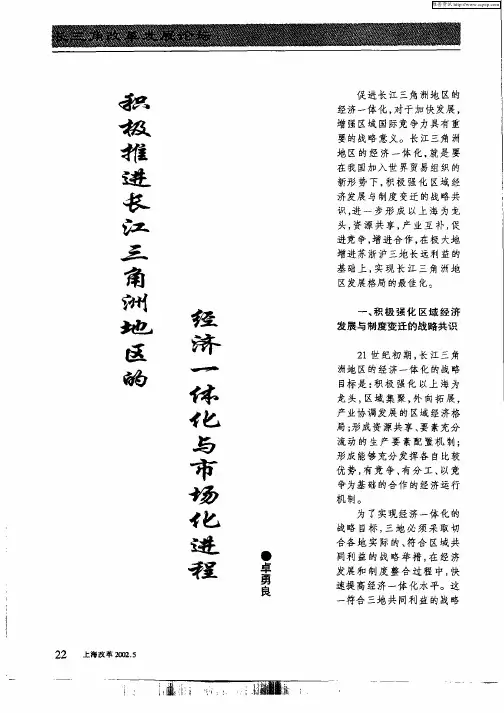 维普资讯 http://www.cqvip.com
长三角改革发展论坛
积极推进长江三角洲地区的
经济一体化与市场化进程
●卓勇良
促进长江三角洲地区的
经济一体化,对于加快发展,
增强区域国际竞争力具有重
要的战略意义。长江三角洲
地区的经济一体化,就是要
在我国加入世界贸易组织的
新形势下,积极强化区域经
济发展与制度变迁的战略共
识,进一步形成以上海为龙
头,资源共享,产业互补,促
进竞争,增进合作,在极大地
增进苏浙沪三地长远利益的
基础上,实现长江三角洲地
区发展格局的最佳化。
一、积极强化区域经济
发展与制度变迁的战略共识
21世纪初期,长江三角
洲地区的经济一体化的战略
目标是:积极强化以上海为
龙头,区域集聚,外向拓展,
产业协调发展的区域经济格
局;形成资源共享、要素充分
流动的生产要素配置机制;
形成能够充分发挥各自比较
优势,有竞争、有分工、以竞
争为基础的合作的经济运行
机制。
为了实现经济一体化的
战略目标,三地必须采取切
合各地实际的、符合区域共
同利益的战略举措,在经济
发展和制度整合过程中,快
速提高经济一体化水平。这
一符合三地共同利益的战略
22 上海改革2002.5